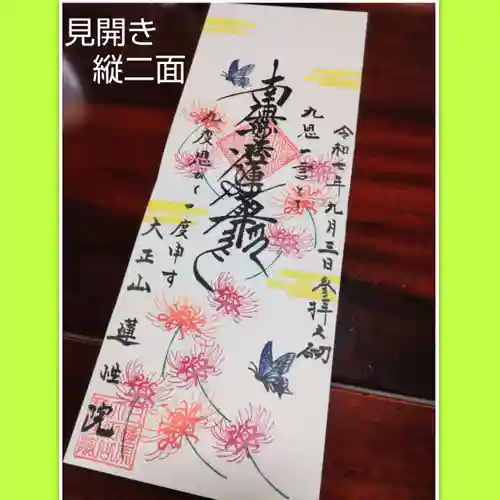 見開き
縦二面
令和七年九月三日参拝之砌
九思一言とは
南無妙法蓮華経
九度思ひて一度申す
大正山
蓮性院